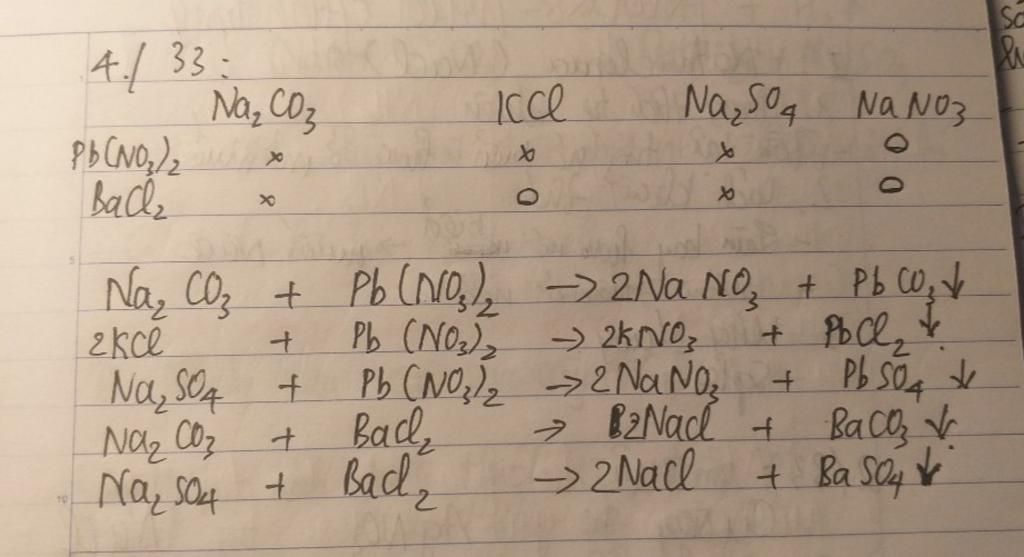 4./ 33:
Na₂CO₃ KCl Na₂SO₄ NaNO₃
Pb(NO₃)₂ x x x o
BaCl₂ x o x o
Na₂CO₃ + Pb(NO₃)₂ → 2NaNO₃ + PbCO₃↓
2KCl + Pb(NO₃)₂ → 2KNO₃ + PbCl₂↓.
Na₂SO₄ + Pb(NO₃)₂ → 2NaNO₃ + PbSO₄↓
Na₂CO₃ + BaCl₂ → 2NaCl + BaCO₃↓.
Na₂SO₄ + BaCl₂ → 2NaCl + BaSO₄↓